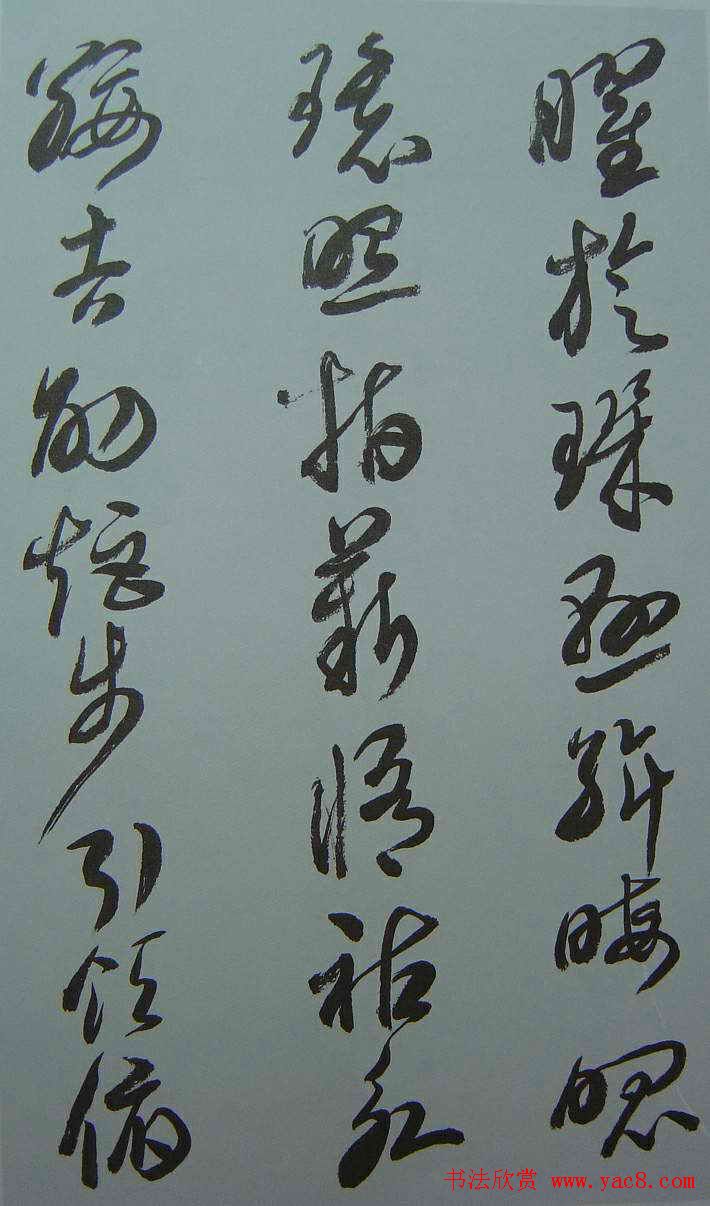 曜旋璣懸斡晦魄
環照指薪脩祜永
綏吉劭矩步引領俯
书法欣赏 www.yac8.com